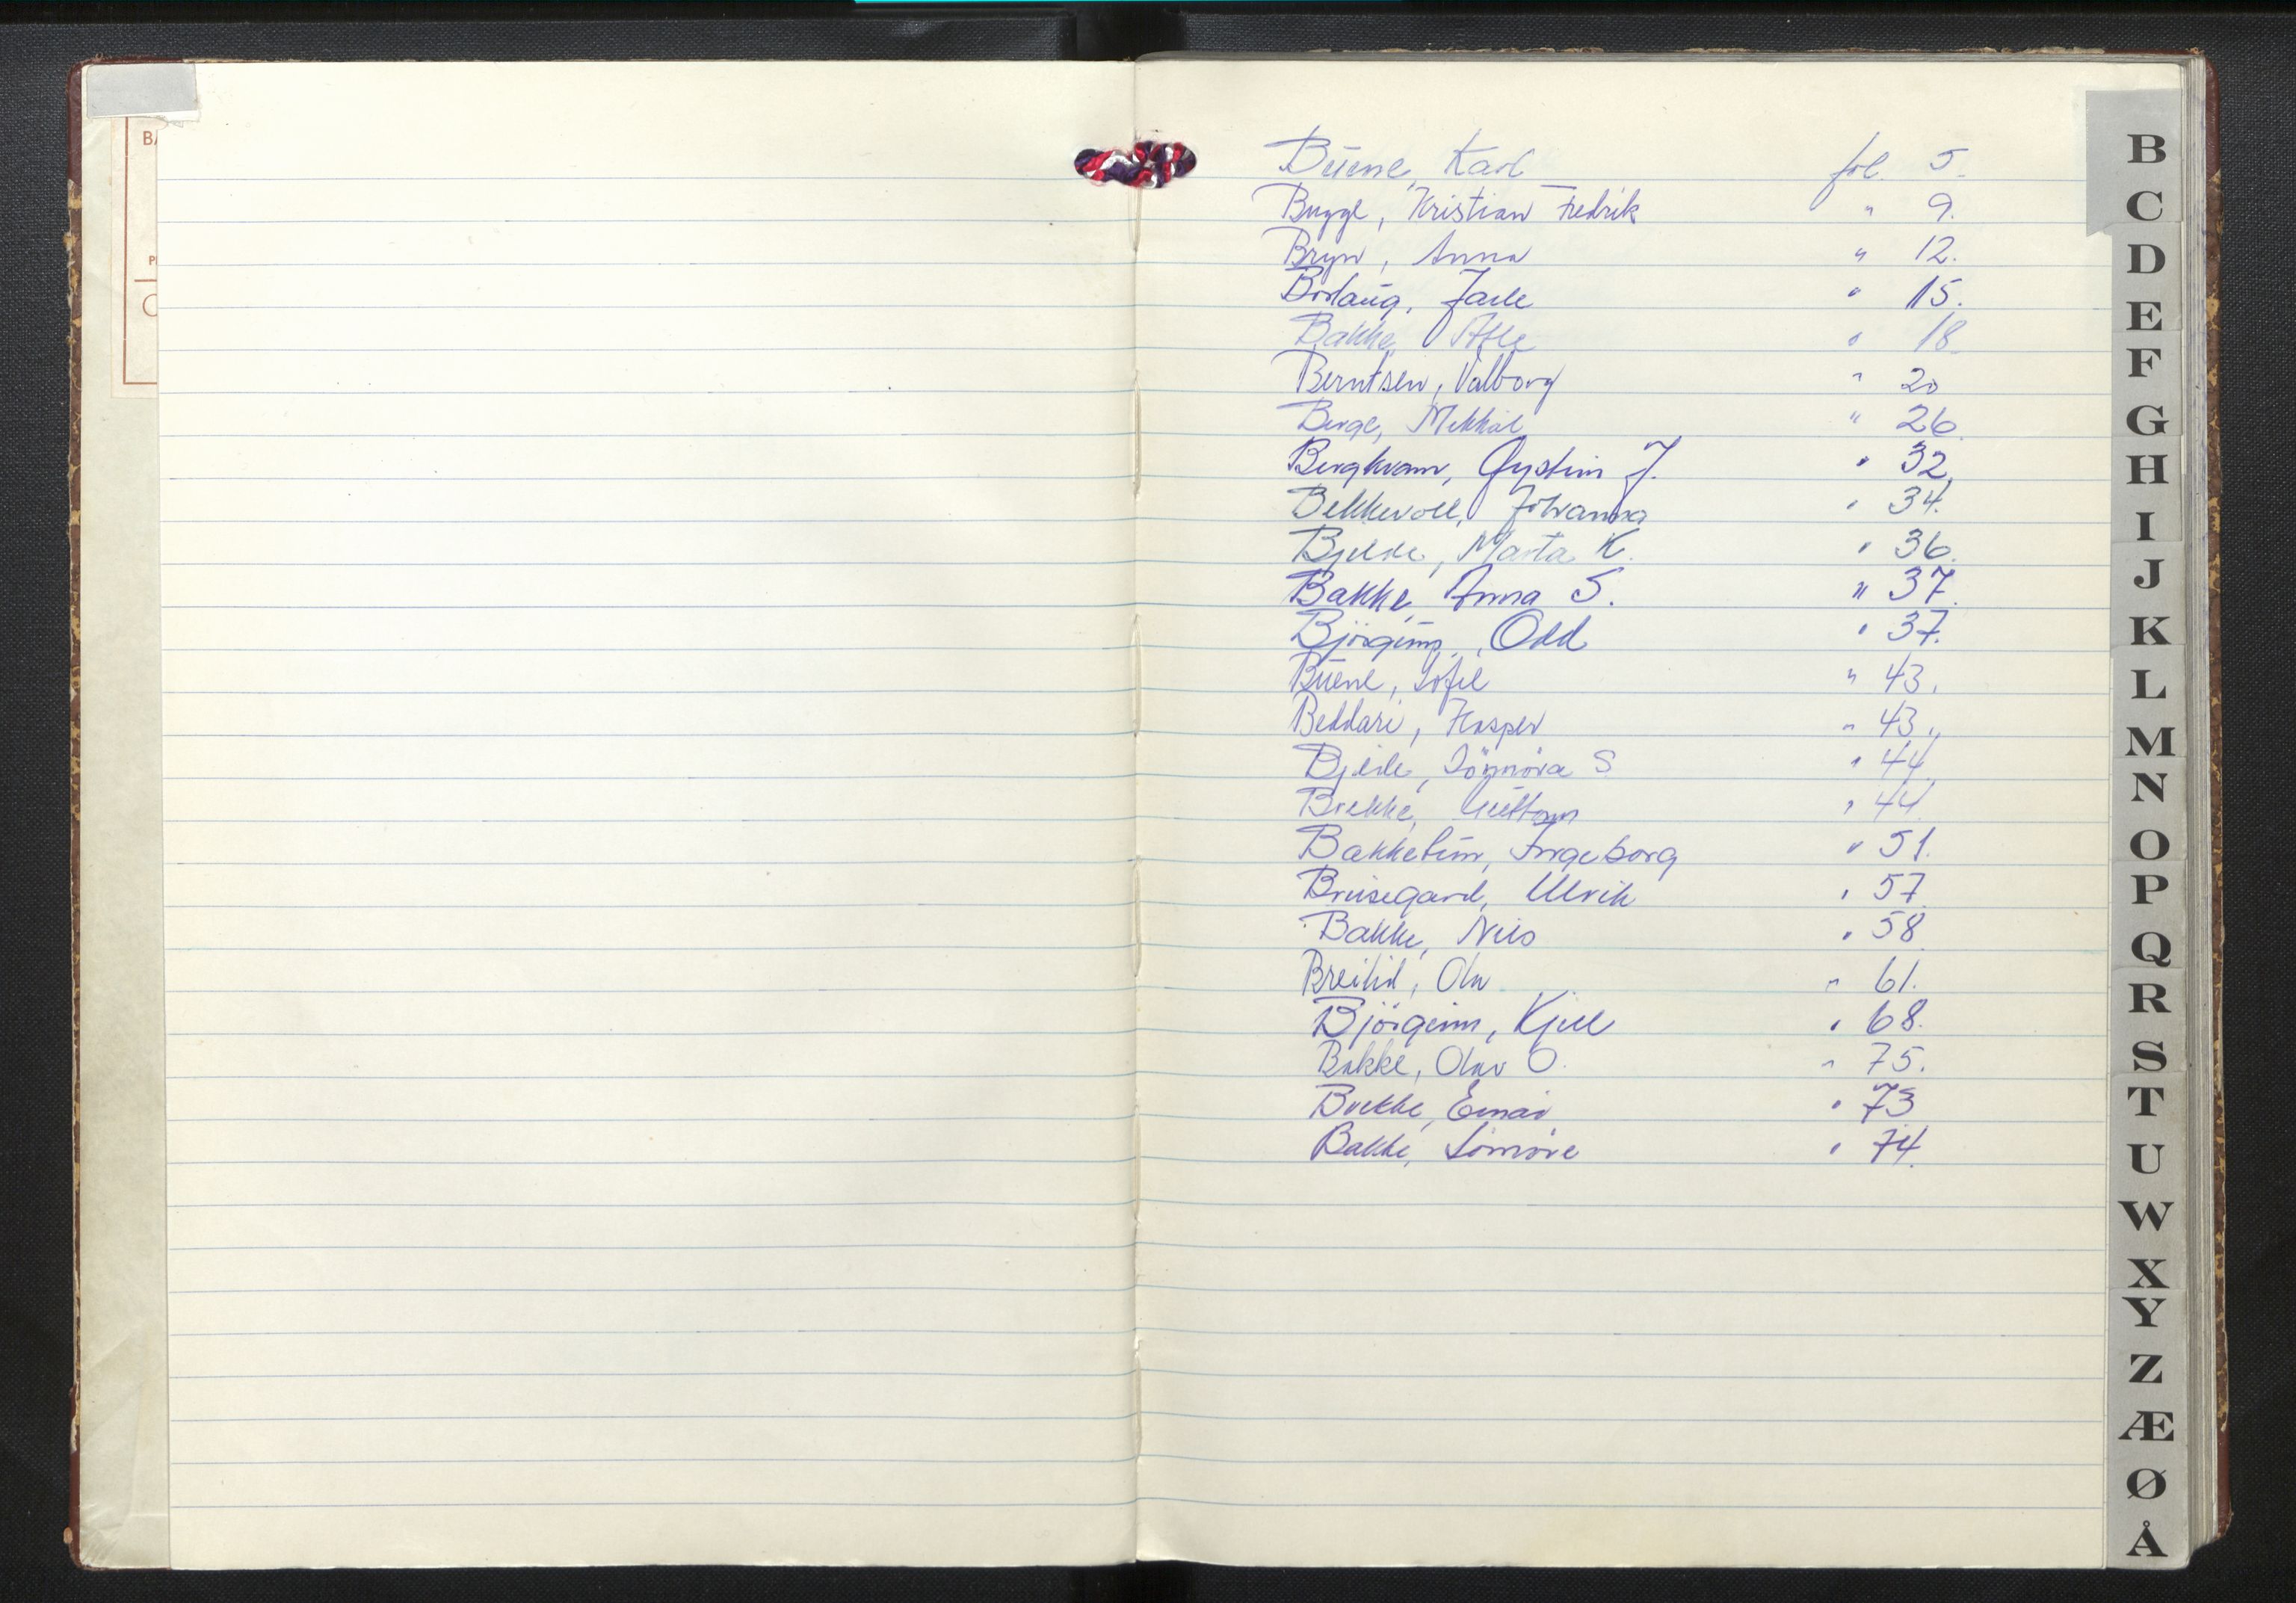 BA
P
C
Büene, Karl fol. 5.
Bugge, Kristian Fredrik " 9.
Bryn, Anna " 12.
Borlaug, Jarle " 15.
Bakke, Atle " 18.
Berntsen, Valborg " 20
Berge, Mikkal " 26.
Bergkvam, Øystein J. " 32.
Bekkevoll, Johanna " 34.
Bjelde, Marta K. " 36.
Bakke, Anna S. " 37.
Björgum, Odd " 37.
Büene, Sofie " 43.
Beddari, Kasper " 43.
Bjelde, Synnöve S " 44.
Brekke, Guttorm " 44.
Bakketun, Ingeborg " 51.
Brusegard, Ulrik " 57.
Bakke, Nils " 58.
Breilid, Olav " 61.
Björgum, Kjell " 68.
Bakke, Olav O. " 75.
Brekke, Einar " 73
Bakke, Synnöve " 74.
B
C
D
E
F
G
H
I
J
K
L
M
N
O
P
Q
R
S
T
U
W
X
Y
Z
Æ
Ø
Å